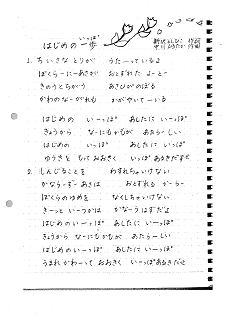 はじめの一歩
いっぽ
新沢としひこ 作詞
中川ひろたか 作曲
1. ちいさな とりが うたーっているよ
ぼくらーにーあさが おとずれた よーと
きのうとちがう あさひがのぼる
かわのながれも かがやいてーいる
はじめの いーっぽ あしたに いーっぽ
きょうから なーにもかもが あたらーしい
はじめの いーっぽ あしたに いーっぽ
ゆうきを もって おおきく いっぽ あるきだせ
2. しんじることを わすれちゃいけない
かならーずー あさは おとずれる かーらー
ぼくらのゆめを なくしちゃいけない
きーっと いーつかは かなーう はずだよ
はじめのいーっぽ あしたに いーっぽ
きょうから なーにもかもが あたらーしい
はじめのいーっぽ あしたに いーっぽ
うまれかわーって おおきく いーっぽあるきだせ